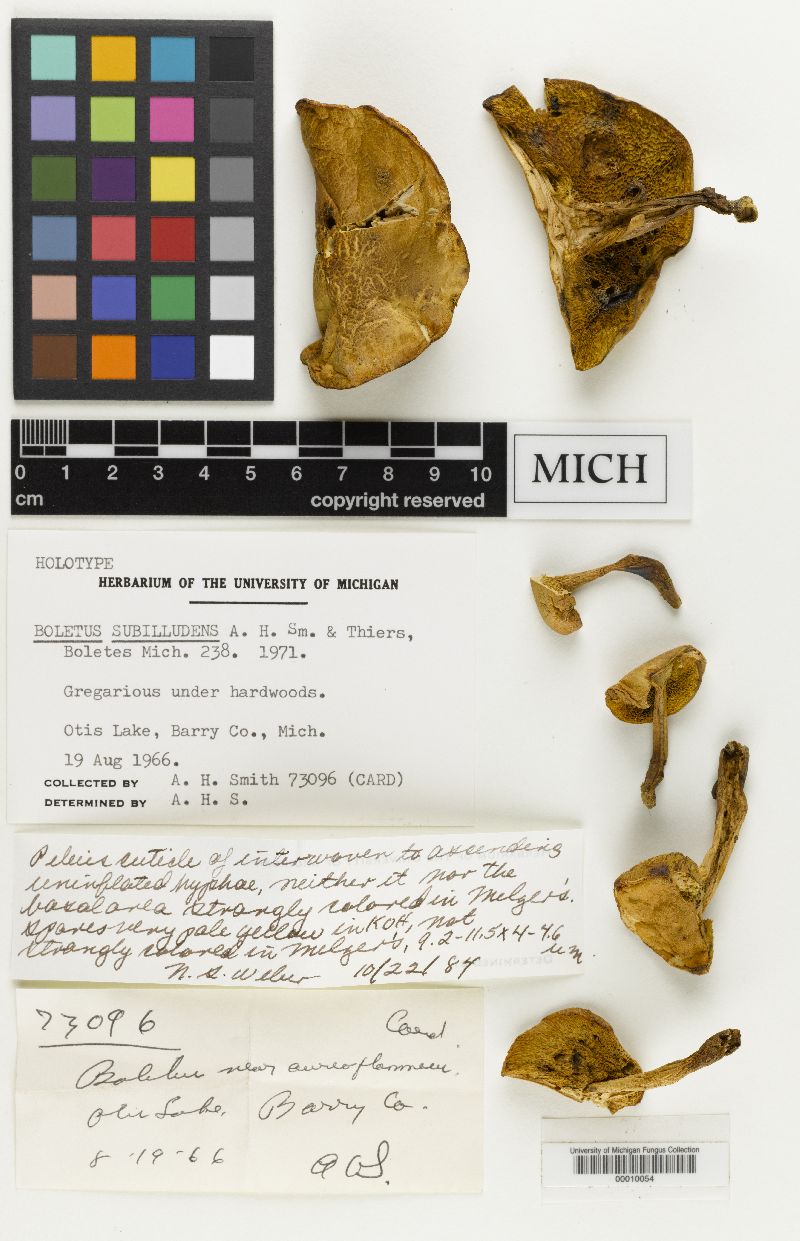 0 1 2 3 4 5 6 7 8 9 10
cm copyright reserved
MICH
HOLOTYPE
HERBARIUM OF THE UNIVERSITY OF MICHIGAN
BOLETUS SUBILLUDENS A. H. Sm. & Thiers,
Boletes Mich. 238. 1971.
Gregarious under hardwoods.
Otis Lake, Barry Co., Mich.
19 Aug 1966.
COLLECTED BY A. H. Smith 73096 (CARD)
DETERMINED BY A. H. S.
Pileus cuticle of interwoven to ascending
uninflated hyphae, neither it nor the
basal area strongly colored in Melzer's.
Spores very pale yellow in KOH, not
strongly colored in Melzer's, 9.2-11.5 x 4-4.6
um.
N. S. Weber 10/22/84
73096 Card.
Boletus near aureoflammeus.
Otis Lake, Barry Co.
8-19-66 AHS.
University of Michigan Fungus Collection
00010054